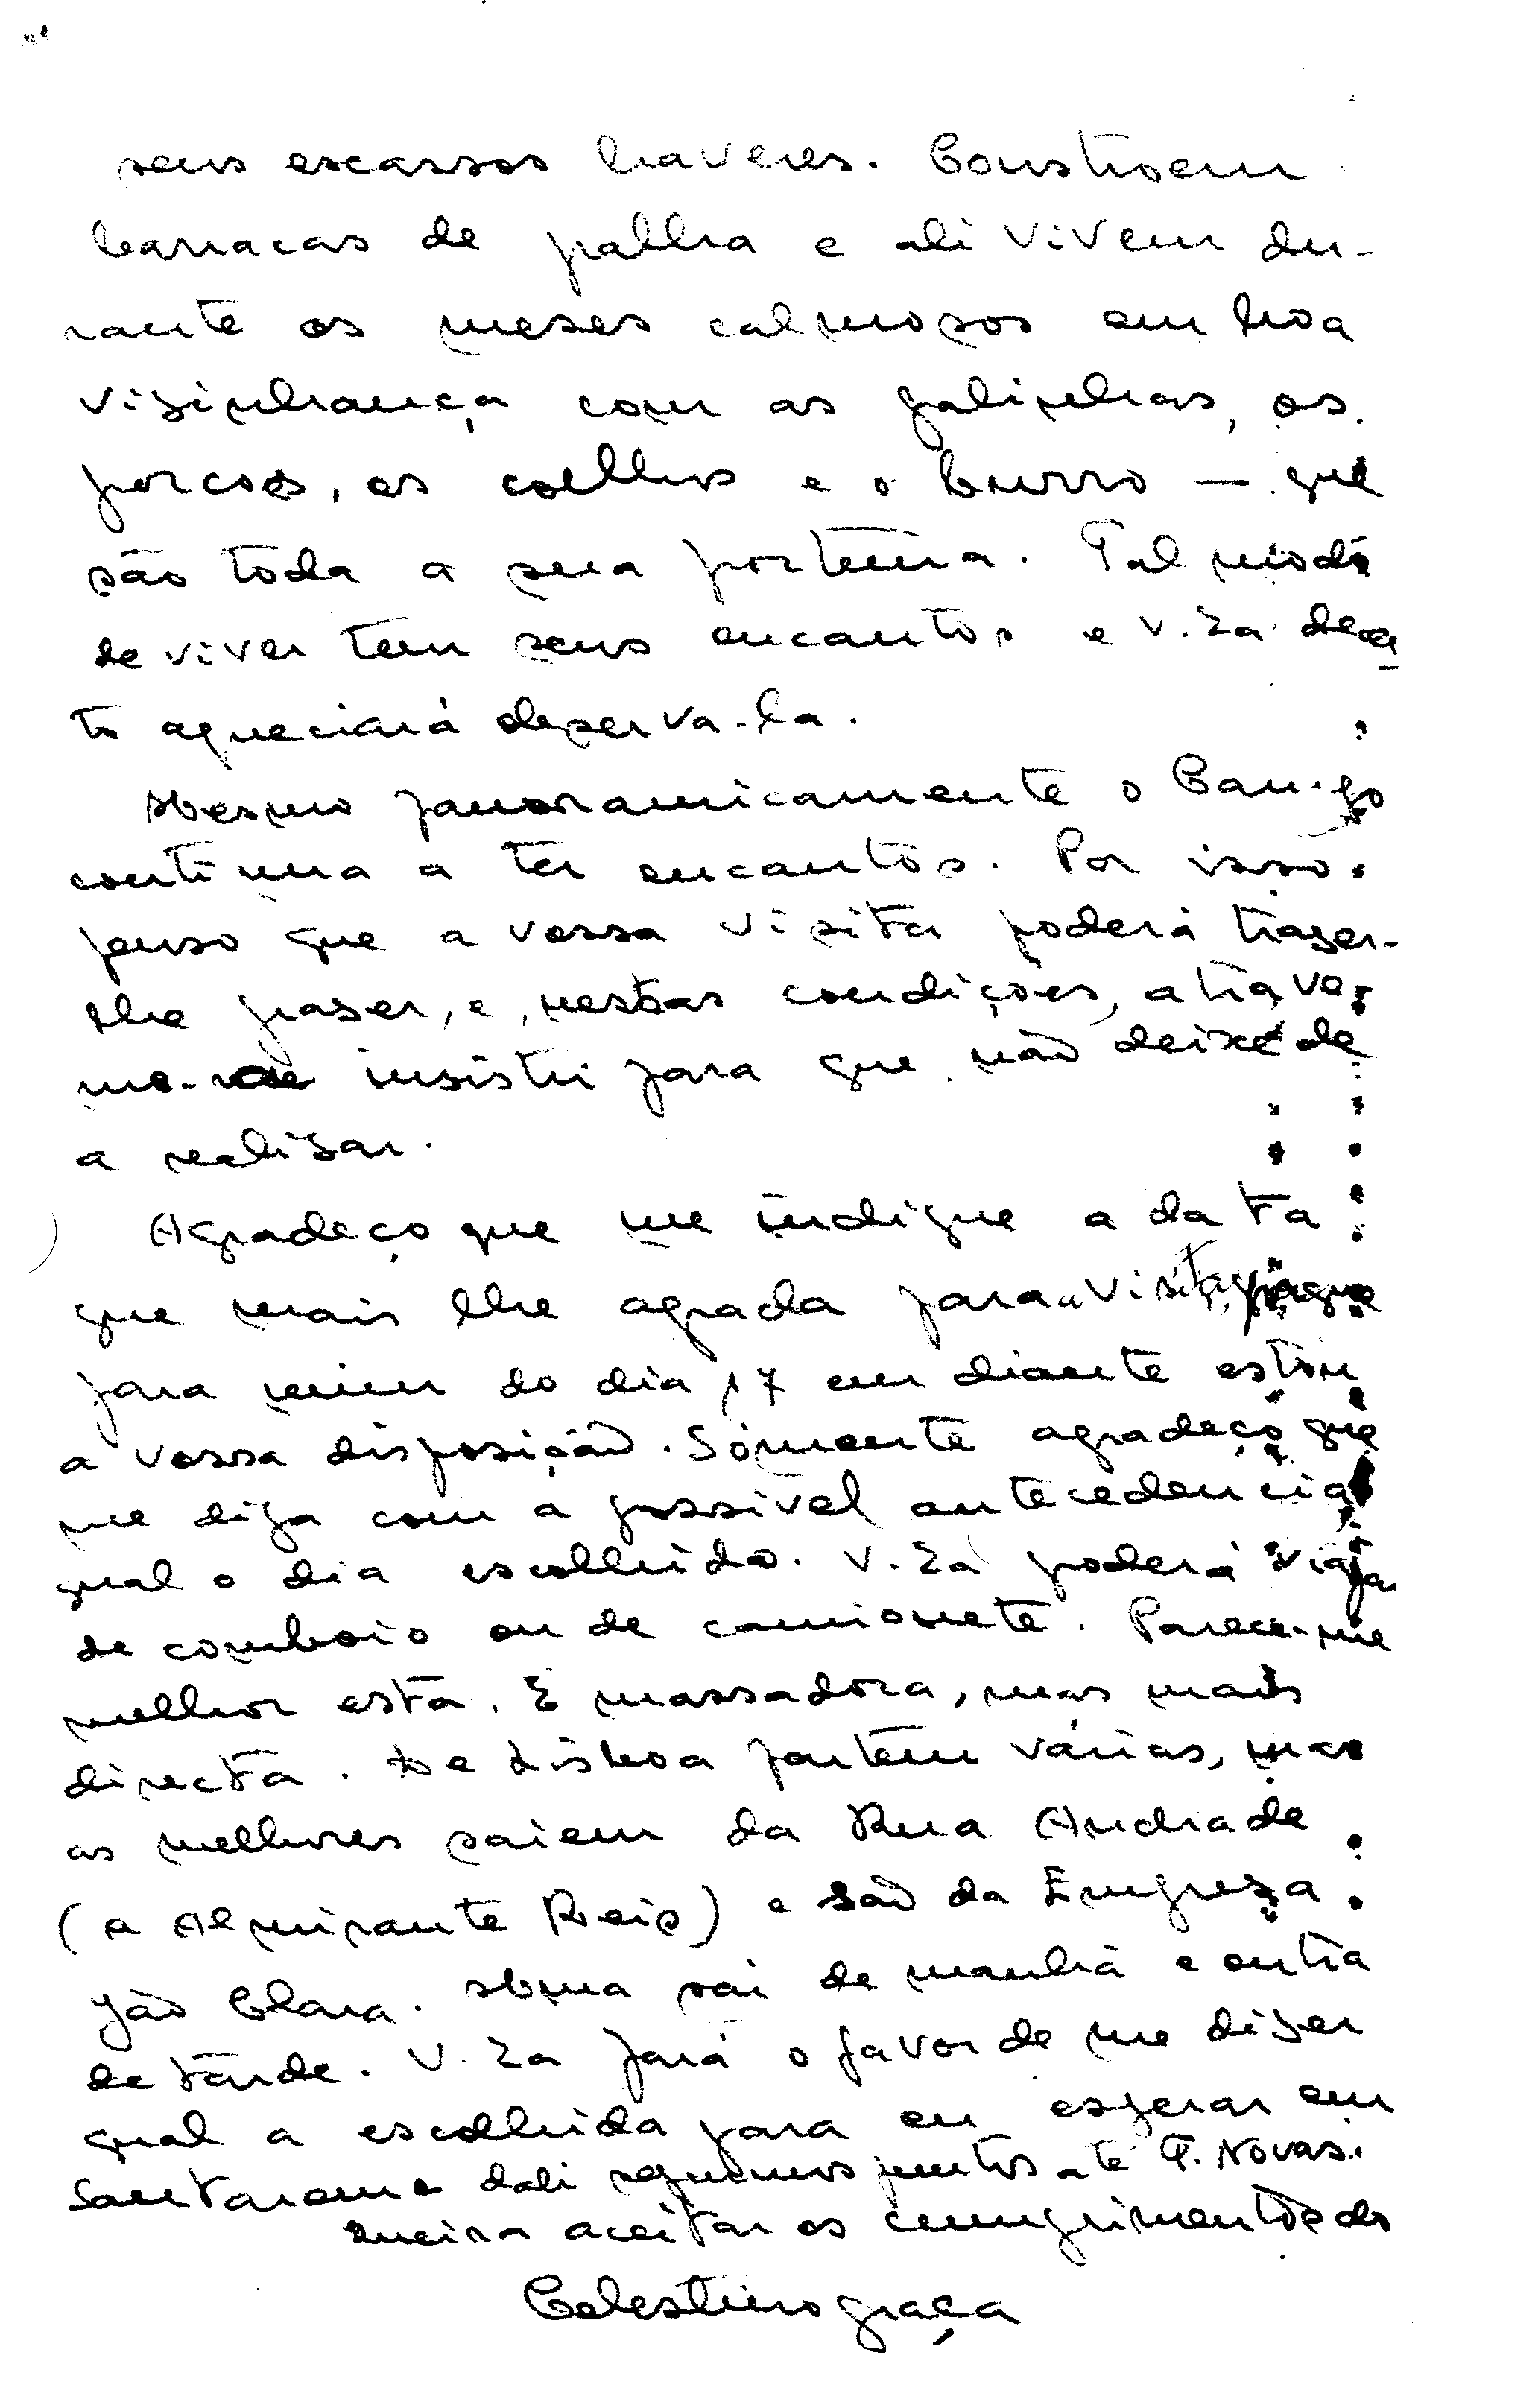 seus escassos haveres. Constroem
barracas de palha e ali vivem du-
rante os meses calmosos em boa
visinhança com as galinhas, os
porcos, os coelhos e o burro — que
são toda a sua fortuna. Tal modo
de viver tem seus encantos e V. Exa decer
to apreciará observa-la.
Mesmo panoramicamente o Campo
continua a ter encantos. Por isso
penso que a vossa visita poderá trazer-
lhe prazer, e, nestas condições, atrevo
me a insistir para que não deixe de
a realizar.
Agradeço que me indique a data
que mais lhe agrada para a visita, porque
para mim do dia 17 em diante estou
a vossa disposição. Sómente agradeço que
me diga com a possivel antecedencia
qual o dia escolhido. V. Exa poderá viajar
de comboio ou de camionete. Parece-me
melhor esta. É massadora, mas mais
directa. De Lisboa partem várias, mas
as melhores saiem da Rua Andrade
(a Almirante Reis) e são da Empreza
João Clara. Uma sai de manhã e outra
de tarde. V. Exa fará o favor de me dizer
qual a escolhida para eu esperar em
Santarem e dali seguirmos juntos até T. Novas.
Queira aceitar os cumprimentos do
Celestino Graça